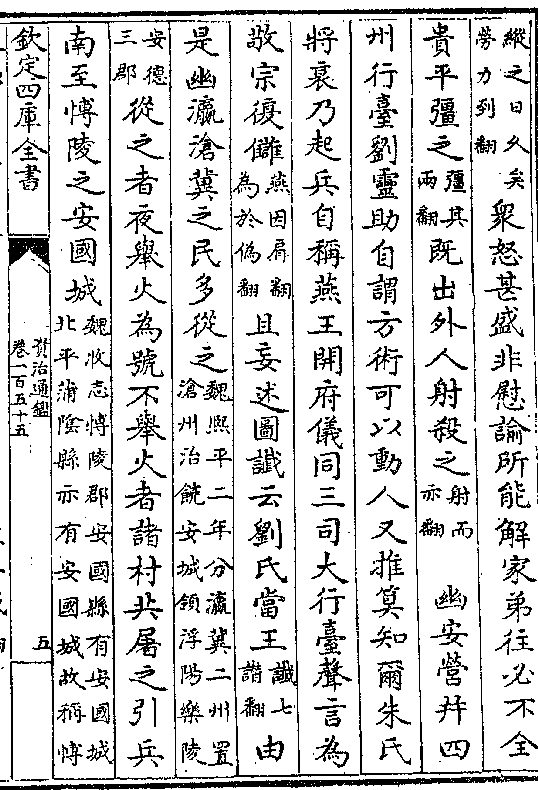 縱之日久矣
勞力到翻
衆怒甚盛非慰諭所能解家弟往必不全
貴平彊之
彊其
兩翻
既出外人射殺之
射而
亦翻
幽安營幷四
州行臺劉靈助自謂方術可以動人又推算知爾朱氏
將衰乃起兵自稱燕王開府儀同三司大行臺聲言為
敬宗復讎
燕因肩翻
為於偽翻
且妄述圖讖云劉氏當王
讖七
譖翻
由
是幽瀛滄冀之民多從之
魏熙平二年分瀛冀二州置
滄州治饒安城領浮陽樂陵
安德
三郡
從之者夜舉火為號不舉火者諸村共屠之引兵
南至博陵之安國城
魏收志博陵郡安國縣有安國城
北平蒲陰縣亦有安國城故稱博
欽定四庫全書
資治通鑑
卷一百五十五
五